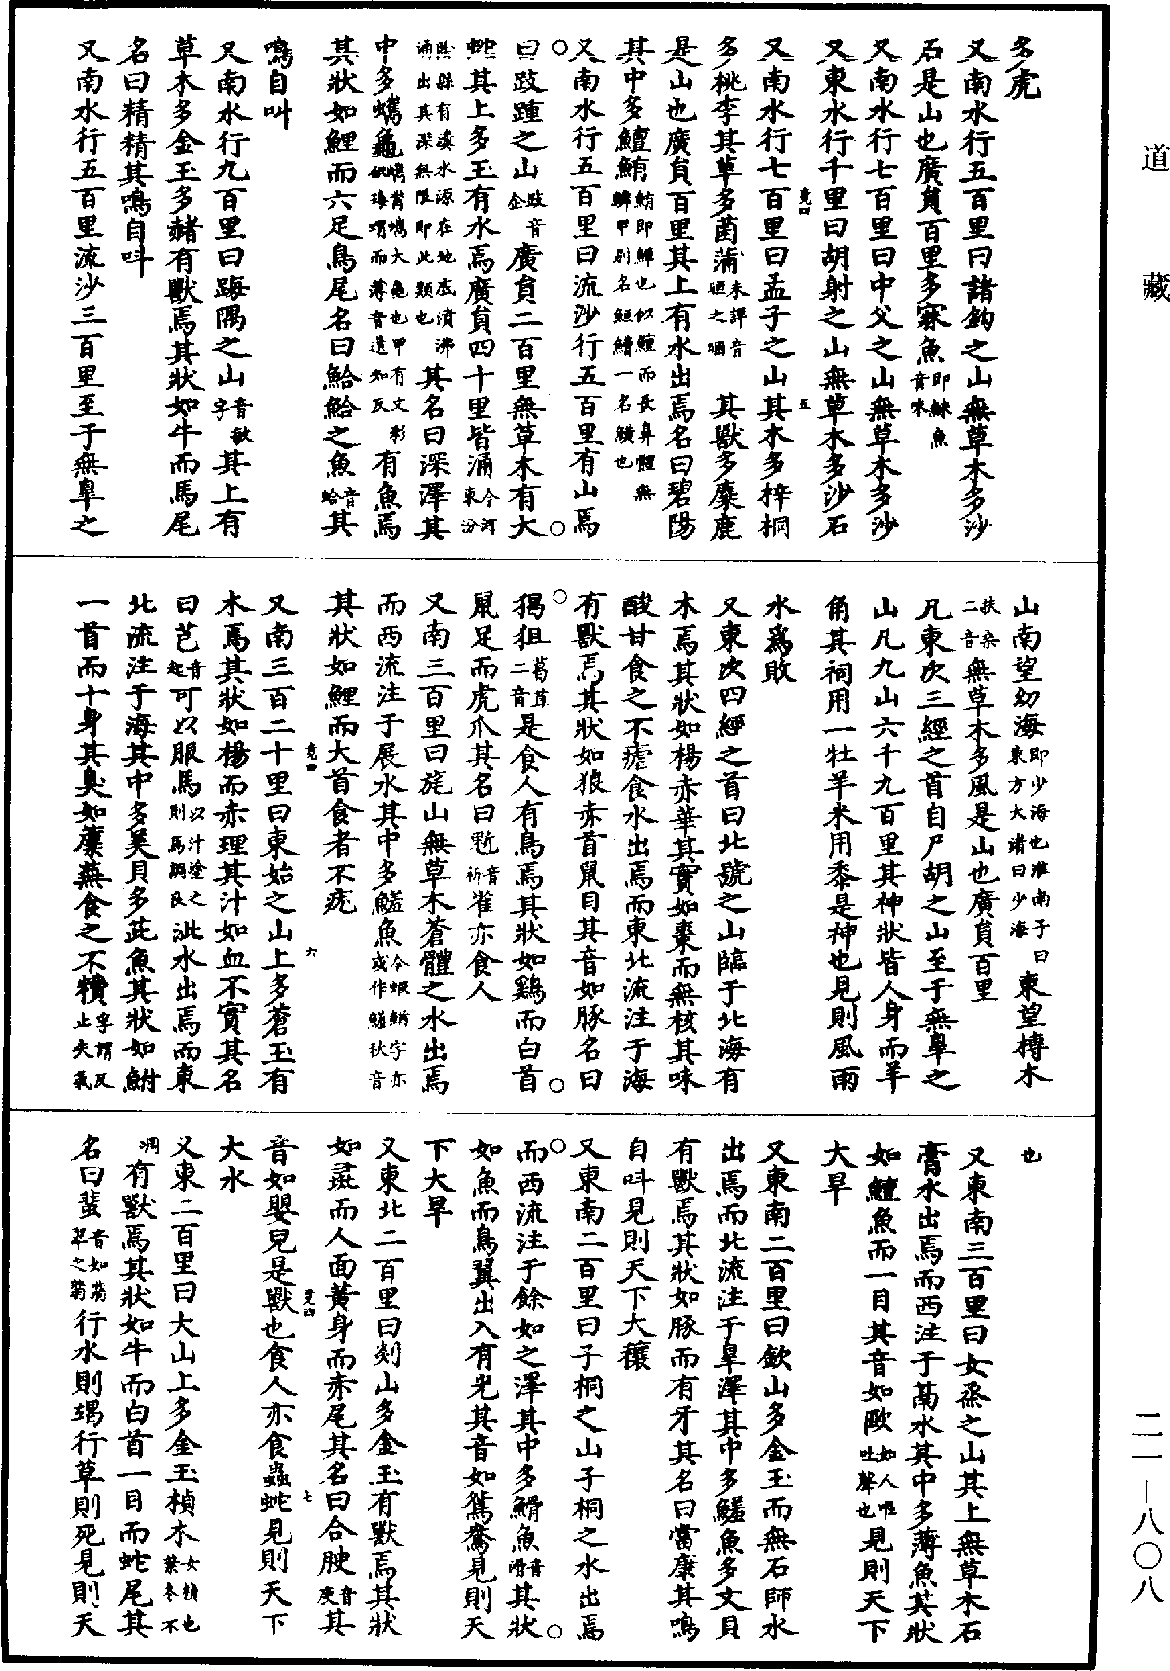 道藏
多虎
又南水行五百里曰諸鉤之山無草木多沙
石是山也廣員百里多寐魚即鮇魚音味
又南水行七百里曰中父之山無草木多沙
又東水行千里曰胡射之山無草木多沙石
竟四 五
又南水行七百里曰孟子之山其木多梓桐
多桃李其草多菌蒲未詳音𥇒之𥇒其獸多麋鹿
是山也廣員百里其上有水出焉名曰碧陽
其中多鱣鮪鮪即鱏也似鱣而長鼻體無鱗甲別名䱭鱛一名鱑也
又南水行五百里曰流沙行五百里有山焉
曰跂踵之山跂音企廣員二百里無草木有大
蛇其上多玉有水焉廣員四十里皆涌今河東汾
陰縣有瀵水源在地底濆沸涌出其深無限即此類也其名曰深澤其
中多蠵龜蠵觜蠵大龜也甲有文彩似瑇瑁而薄音遺知反有魚焉
其狀如鯉而六足鳥尾名曰鮯鮯之魚音蛤其
鳴自叫
又南水行九百里曰踇隅之山音敏字其上有
草木多金玉多赭有獸焉其狀如牛而馬尾
名曰精精其鳴自叫
又南水行五百里流沙三百里至于無臯之
山南望幼海即少海也淮南子曰東方大渚曰少海東望榑木
扶桑二音無草木多風是山也廣員百里
凡東次三經之首自尸胡之山至于無臯之
山凡九山六千九百里其神狀皆人身而羊
角其祠用一牡羊米用黍是神也見則風雨
水爲敗
又東次四經之首曰北號之山臨于北海有
木焉其狀如楊赤華其實如棗而無核其味
酸甘食之不瘧食水出焉而東北流注于海
有獸焉其狀如狼赤首鼠目其音如豚名曰
猲狙葛苴二音是食人有鳥焉其狀如鷄而白首
鼠足而虎爪其名曰鬿音祈雀亦食人
又南三百里曰旄山無草木蒼體之水出焉
而西流注于展水其中多鱃魚今蝦鰌字亦或作鱃秋音
其狀如鯉而大首食者不疣
竟四 六
又南三百二十里曰東始之山上多蒼玉有
木焉其狀如楊而赤理其汁如血不實其名
曰芑音起可以服馬以汁塗之則馬調良泚水出焉而東
北流注于海其中多美貝多茈魚其狀如鮒
一首而十身其臭如蘪蕪食之不𥢶孚謂反止失氣
也
又東南三百里曰女烝之山其上無草木石
膏水出焉而西注于鬲水其中多薄魚其狀
如鱣魚而一目其音如歐如人嘔吐聲也見則天下
大旱
又東南二百里曰欽山多金玉而無石師水
出焉而北流注于臯澤其中多鱃魚多文貝
有獸焉其狀如豚而有牙其名曰當康其鳴
自叫見則天下大穰
又東南二百里曰子桐之山子桐之水出焉
而西流注于餘如之澤其中多䱻魚音滑其狀
如魚而鳥翼出入有光其音如鴛鴦見則天
下大旱
又東北二百里曰剡山多金玉有獸焉其狀
如彘而人面黃身而赤尾其名曰合㺊音庾其
音如嬰兒是獸也食人亦食蟲蛇見則天下
竟四 七
大水
又東二百里曰大山上多金玉楨木女楨也葉冬不
凋有獸焉其狀如牛而白首一目而蛇尾其
名曰蜚音如翡翠之翡行水則竭行草則死見則天
二一—八〇八